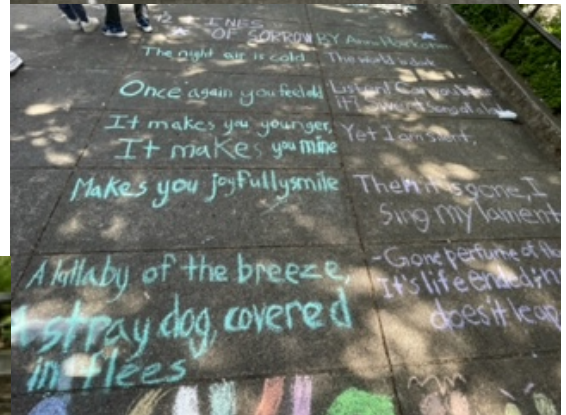 12 LINES
OF SORROW BY Anna
The night air is cold
Once again you feel old
It makes you younger,
It makes you mine
Makes you joyfully smile
A lullaby of the breeze,
A stray dog, covered
in flees
The world is dark
Listen! Can you hear
it? sweet song of a
Yet I am silent,
Then it's gone, I
sing my lament
-Gone perfume of
It's life ended, no
does it leap